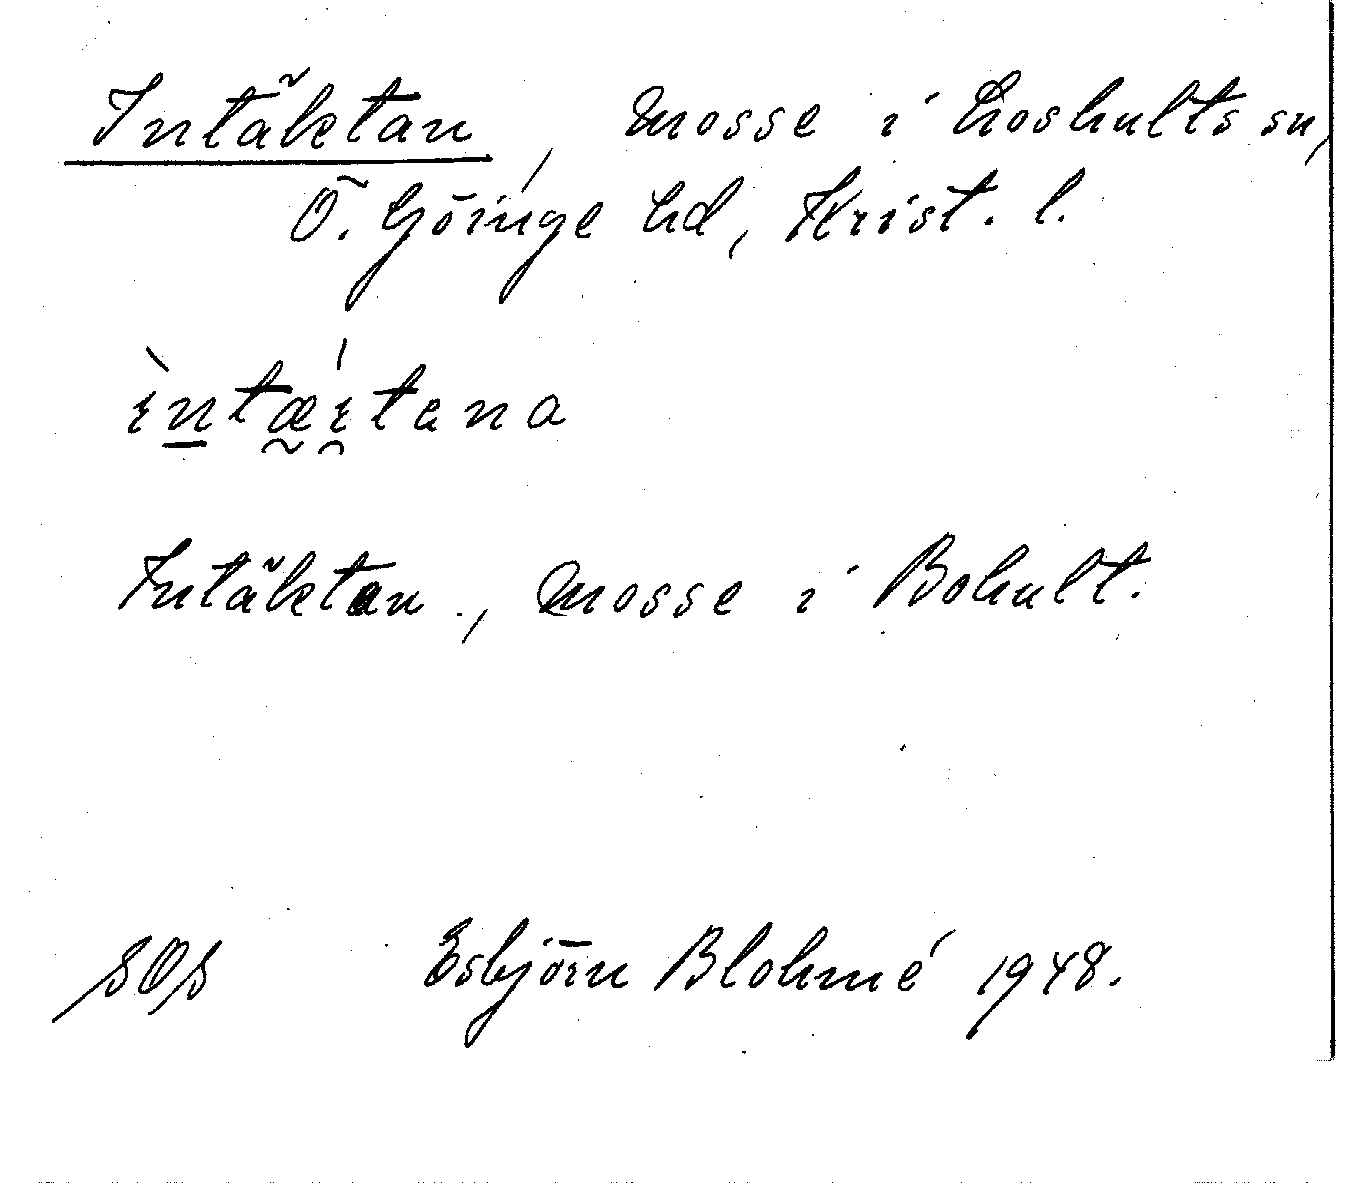 Intäktan, mosse i Loshults sn,
Ö. Göinge hd, Krist. l.
ìntǽ̰i̯tana
Intäktan., mosse i Bohult.
SOS Esbjörn Blohmé 1948.